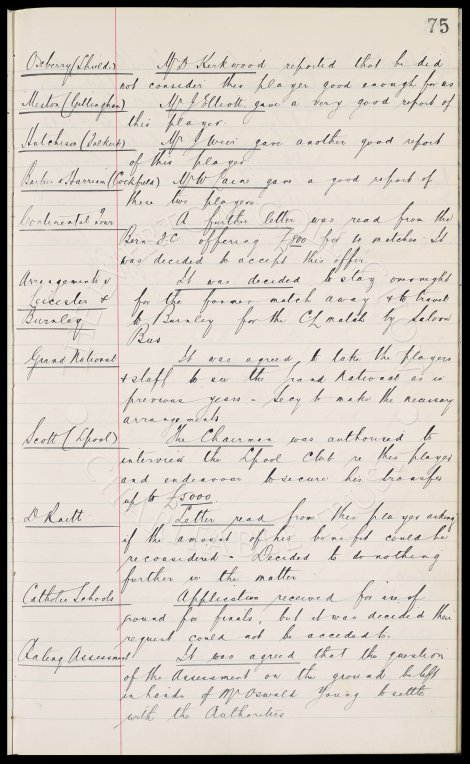 75
Oxberry (Shields) Mr D. Kirkwood reported that he did
not consider this player good enough for us
Meston (Gillingham) Mr J Elliott gave a very good report of
this player.
Hutchison (Falkirk) Mr J Weir gave another good report
of this player
Barker & Harrison (Cockfield) Mr W Cains gave a good report of
these two players
Continental Tour A further letter was read from the
Bern F.C. offering £800 for 10 matches It
was decided to accept this offer
Arrangements It was decided to stay overnight
Leicester & for the former match away & to travel
Burnley to Burnley for the CL match by Saloon
Bus
Grand National It was agreed to take the players
& staff to see the Grand National as in
previous years - Secy to make the necessary
arrangements
Scott (Lpool) The Chairman was authorised to
interview the Lpool Club re this player
and endeavour to secure his transfer
up to £5000.
D. Raitt Letter read from this player asking
if the amount of his benefit could be
reconsidered - Decided to do nothing
further in the matter
Catholic Schools Application received for use of
ground for finals, but it was decided their
request could not be acceded to.
Rating Assessment It was agreed that the question
of the Assessment on the ground be left
in hands of Mr Oswald Young to settle
with the Authorities